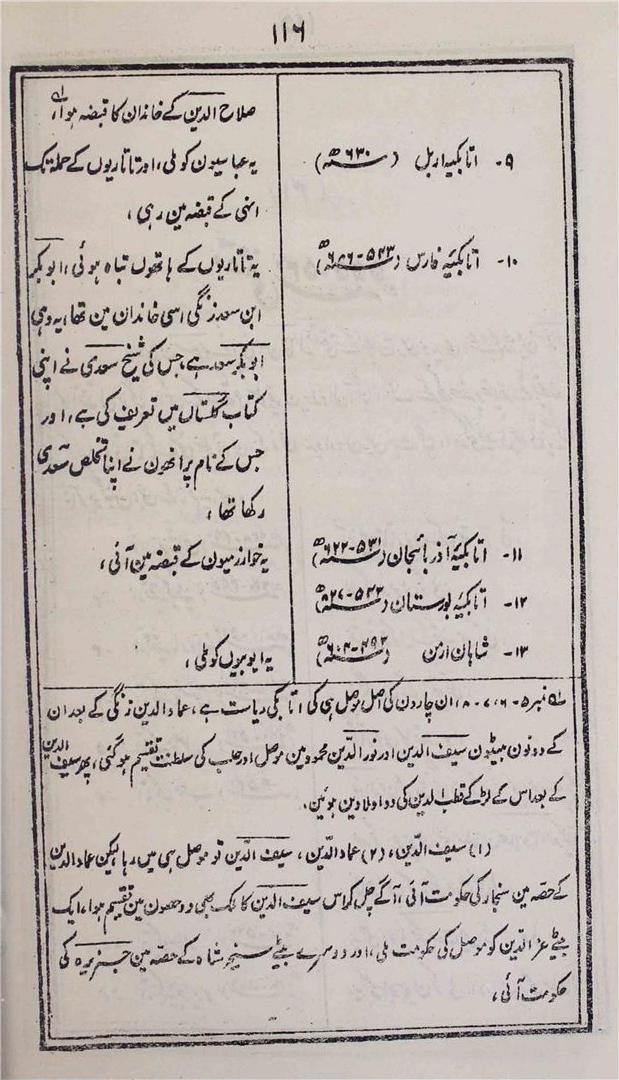 ۱۱۶
صلاح الدین کے خاندان کا قبضہ ہوا،
۹- اتابکیہ اربل (۶۳۰ھ) یہ عباسیون کو ملی، اور تاتاریوں کے حملہ تک
انہی کے قبضہ مین رہی،
۱۰- اتابکیۂ فارس (۵۴۳-۶۸۶ھ) یہ تاتاریوں کے ہاتھوں تباہ ہوئی، ابوبکر
ابن سعد زنگی اسی خاندان مین تھا، یہ وہی
ابوبکر سعد ہے، جس کی شیخ سعدی نے اپنی
کتاب گلستاں میں تعریف کی ہے، اور
جس کے نام پر انھون نے اپنا تخلص سعدی
رکھا تھا،
۱۱- اتابکیۂ آذربائیجان (۵۳۱-۶۲۲ھ) یہ خوارزمیون کے قبضہ مین آئی،
۱۲- اتابکیۂ لورستان (۵۴۳-
۱۳- شاہان ارمن (۴۹۳-۶۰۴ھ) یہ ایوبیوں کو ملی،
لہ نمبر ۵، ۶، ۷، ۸، ان چارون کی اصل موصل ہی کی اتابکی ریاست ہے، عماد الدین زنگی کے بعد ان
کے دونون بیٹون سیف الدین اور نور الدین محمود مین موصل اور حلب کی سلطنت تقسیم ہو گئی، پھر سیف الدین
کے بعد اس کے لڑکے قطب الدین کی دو اولادین ہوئین،
(۱) سیف الدین، (۲) عماد الدین، سیف الدین تو موصل ہی میں رہا لیکن عماد الدین
کے حصہ مین سنجار کی حکومت آئی، آگے چل کر اس سیف الدین کا ملک بھی دو حصون مین تقسیم ہوا، ایک
بیٹے عز الدین کو موصل کی حکومت ملی، اور دوسرے بیٹے سنجر شاہ کے حصہ مین جزیرہ کی
حکومت آئی،